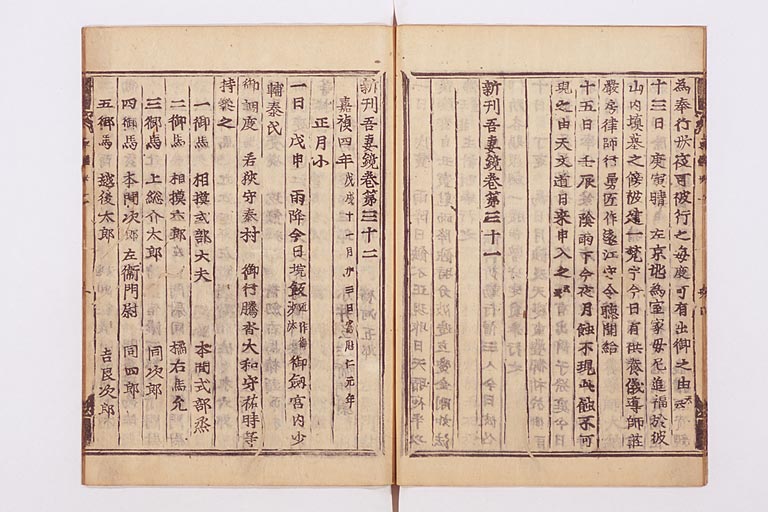 為奉行昼夜可被行之毎度可有出御之由云云
十三日庚寅晴左京兆為室家母尼追福於彼
山内墳墓之傍被建一梵宇今日有供養儀導師荘
厳房律師行勇匠作遠江守令聴聞給
十五日壬辰陰雨下今夜月蝕不現此蝕不可
現之由天文道日来申入之云云
新刊吾妻鏡巻第三十一
新刊吾妻鏡巻第三十二
嘉禎四年戊戌十一月廿三日為暦仁元年
正月小
一日戊申雨降今日垸飯匠作御沙汰御釼宮内少
輔泰氏
御調度若狭守泰村御行騰沓大和守祐時等
持参之
一御馬相摸式部大夫本間式部丞
二御馬相摸六郎橘右馬允
三御馬上総介太郎同次郎
四御馬本間次郎左衛門尉同四郎
五御馬越後太郎吉良次郎